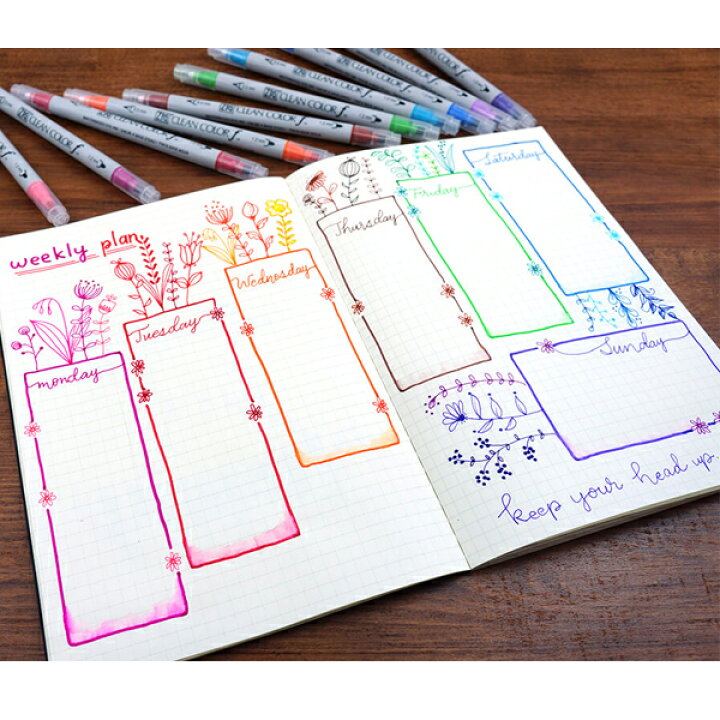 CLEAN COLOR f
CLEAN COLOR f
CLEAN COLOR f
CLEAN COLOR f
weekly plan
monday
Tuesday
Wednesday
Thursday
Friday
Saturday
Sunday
keep your head up.